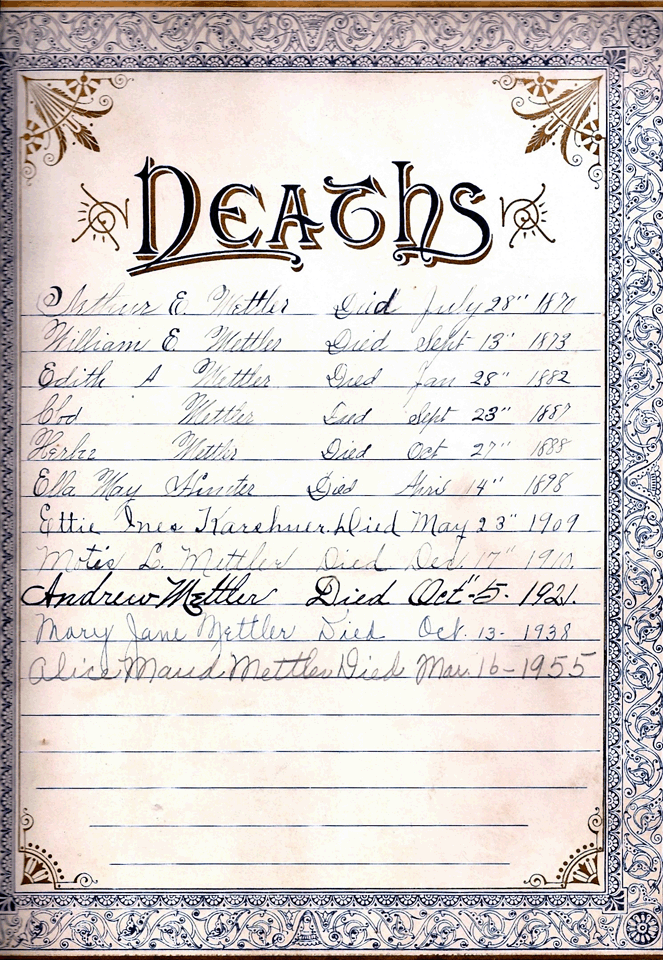 DEATHS
Arthur E. Mettler Died July 28" 1870
William E. Mettler Died Sept 13" 1873
Edith A Mettler Died Jan 28" 1882
Mettler Died Sept 23" 1887
Mettler Died Oct 27" 1888
Ella May Hunter Died April 14" 1898
Ettie Ines Karshner Died May 23" 1909
L. Mettler Died Dec. 17" 1910.
Andrew Mettler Died Oct"-5-1921.
Mary Jane Mettler Died Oct. 13-1938
Alice Maud Mettler Died Mar. 16-1955